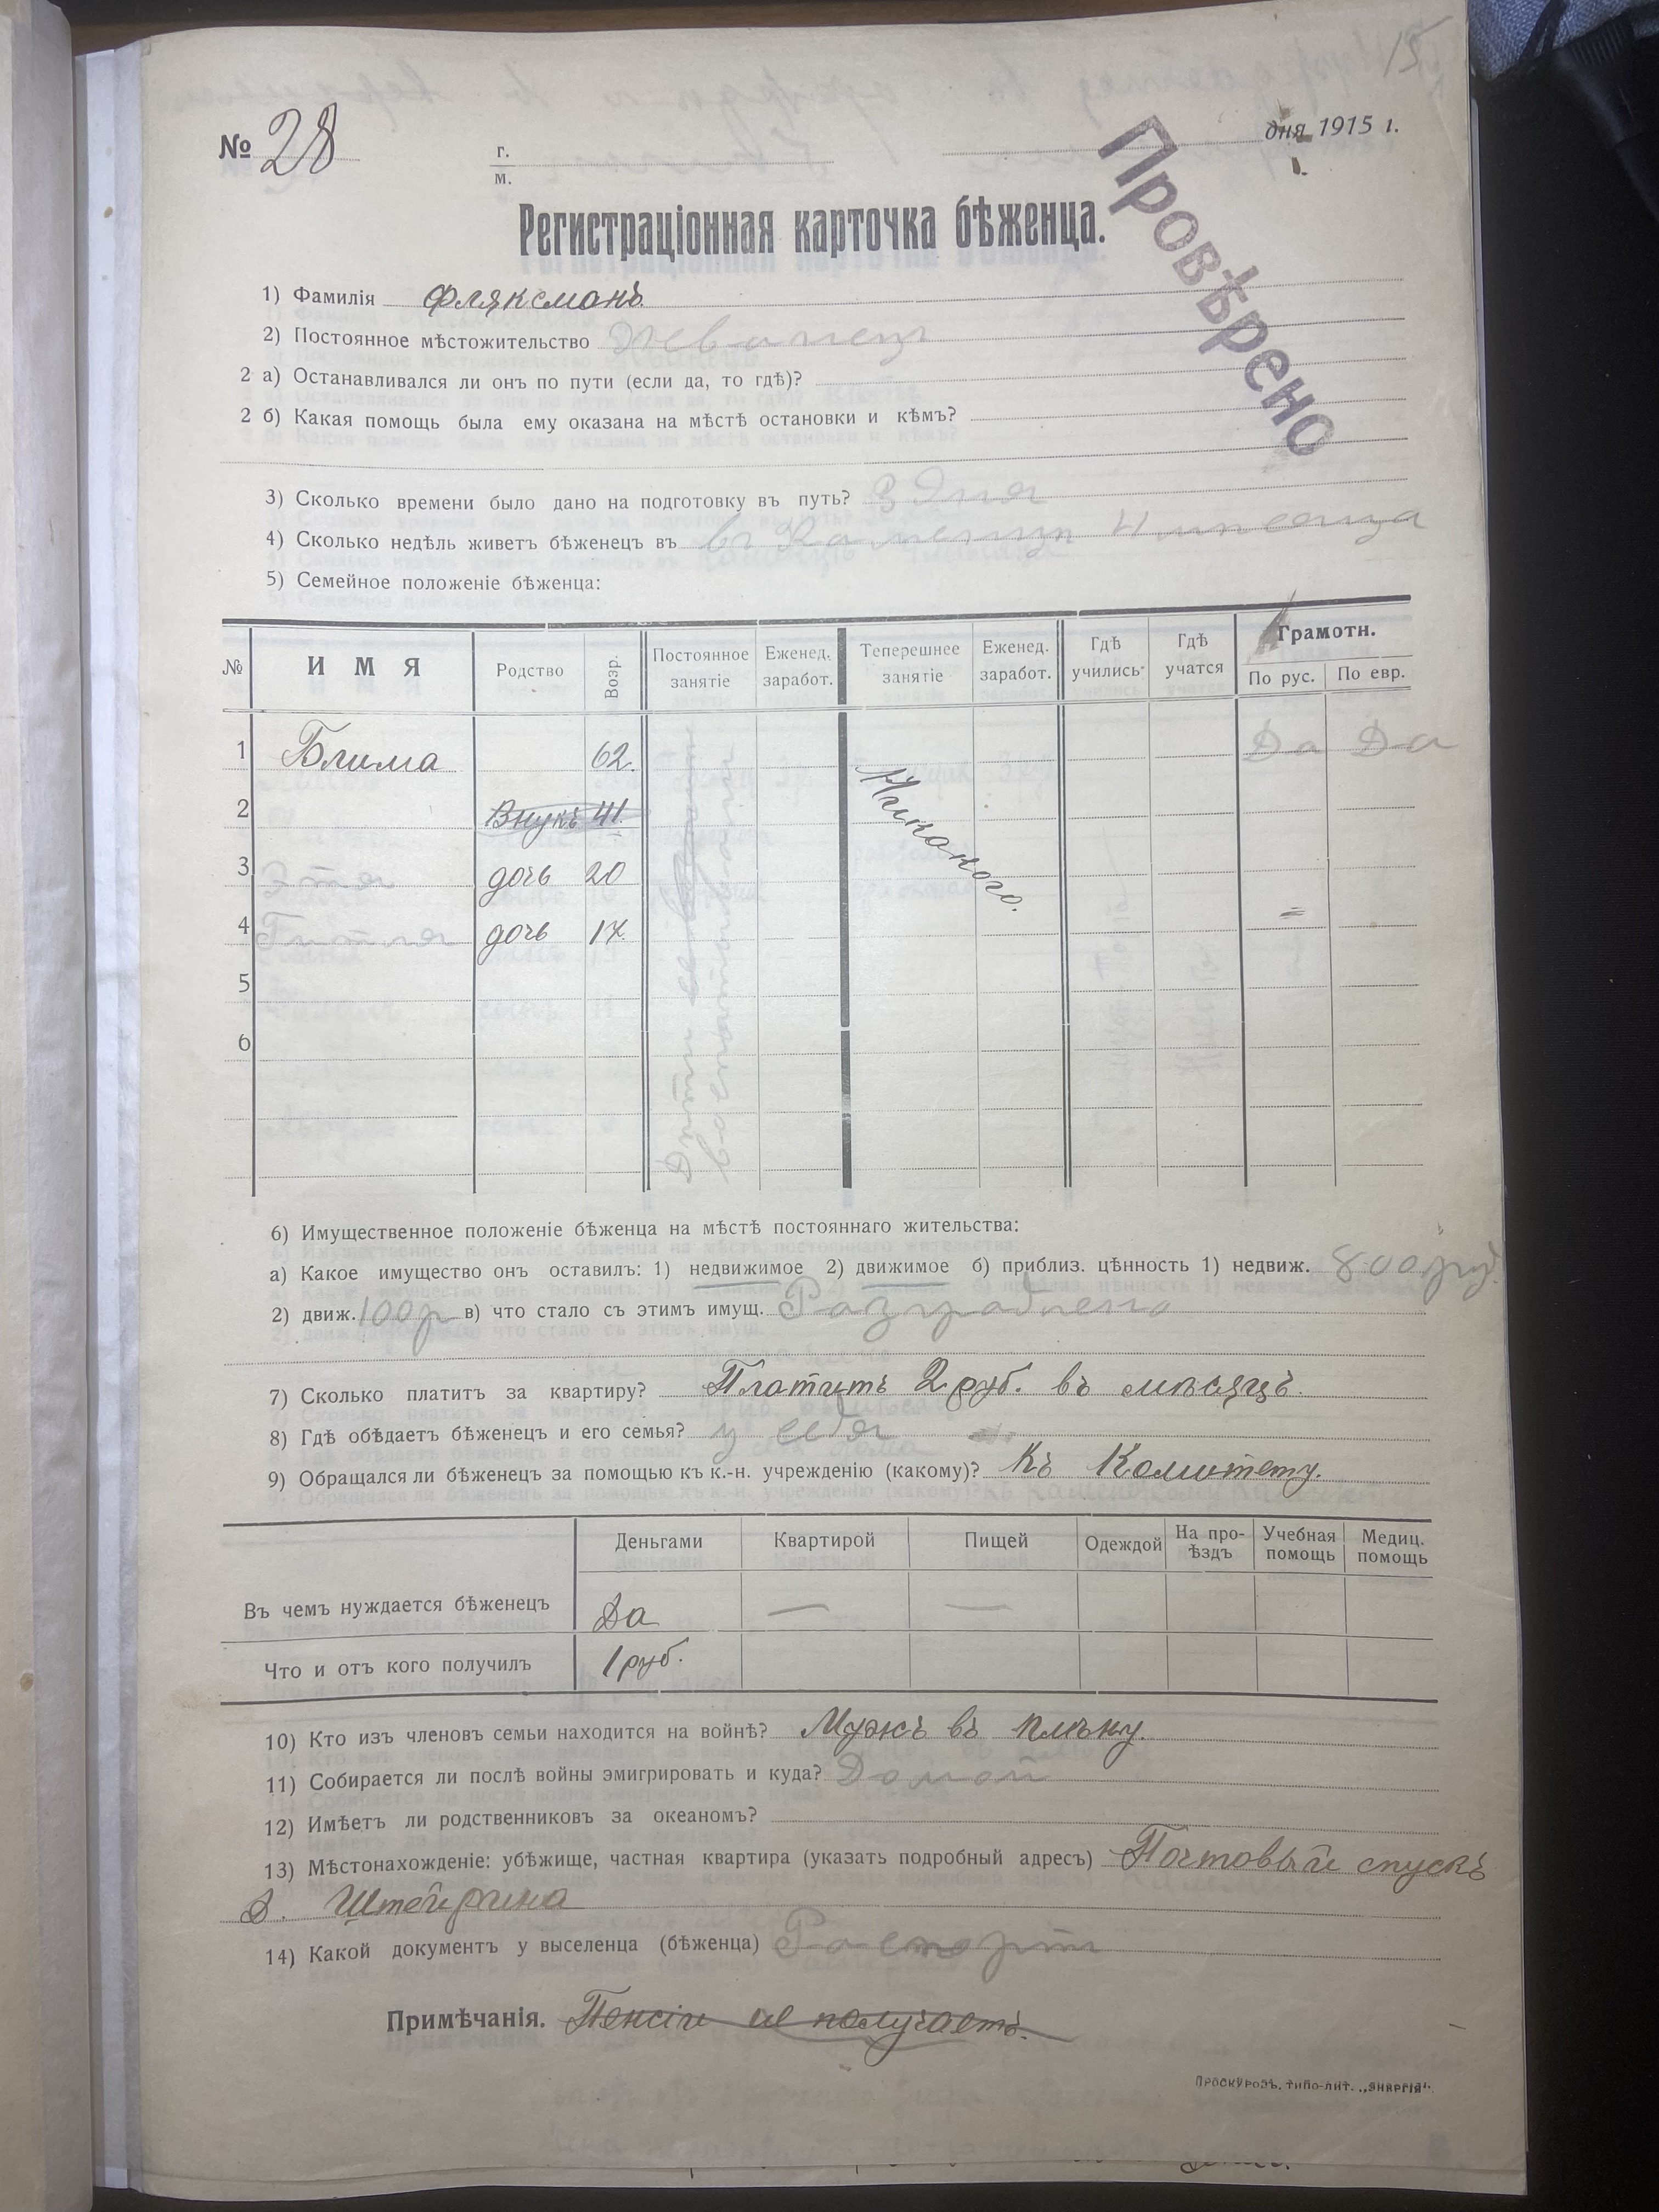 15
№ 28
г.
м.
дня 1915 г.
Провѣрено
Регистраціонная карточка бѣженца.
1) Фамилія Фляксманъ
2) Постоянное мѣстожительство Жванец
2 а) Останавливался ли онъ по пути (если да, то гдѣ)?
2 б) Какая помощь была ему оказана на мѣстѣ остановки и кѣмъ?
3) Сколько времени было дано на подготовку въ путь? 3 дня
4) Сколько недѣль живетъ бѣженецъ въ
5) Семейное положеніе бѣженца:
№ ИМЯ Родство Возр. Постоянное занятіе Еженед. заработ. Теперешнее занятіе Еженед. заработ. Гдѣ учились Гдѣ учатся Грамотн.
По рус. По евр.
1 Блима 62. Да Да
2 Внукъ 41.
Никакого.
3 Этя дочь 20
4 дочь 17.
5
6
6) Имущественное положеніе бѣженца на мѣстѣ постояннаго жительства:
а) Какое имущество онъ оставилъ: 1) недвижимое 2) движимое б) приблиз. цѣнность 1) недвиж. 800 руб.
2) движ. 100 р в) что стало съ этимъ имущ. Разграблено
7) Сколько платитъ за квартиру? Платитъ 2 руб. въ мѣсяцъ.
8) Гдѣ обѣдаетъ бѣженецъ и его семья? у себя
9) Обращался ли бѣженецъ за помощью къ к.-н. учрежденію (какому)? Къ Комитету.
Деньгами Квартирой Пищей Одеждой На проѣздъ Учебная помощь Медиц. помощь
Въ чемъ нуждается бѣженецъ Да — —
Что и отъ кого получилъ 1 руб.
10) Кто изъ членовъ семьи находится на войнѣ? Мужъ въ плѣну.
11) Собирается ли послѣ войны эмигрировать и куда? Домой
12) Имѣетъ ли родственниковъ за океаномъ?
13) Мѣстонахожденіе: убѣжище, частная квартира (указать подробный адресъ) Почтовый спускъ
д. Штейрина
14) Какой документъ у выселенца (бѣженца)
Примѣчанія. Пенсіи не получаетъ.
Проскуровъ, типо-лит. „Энергія".